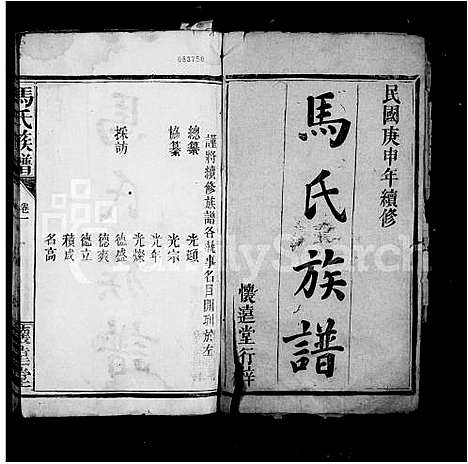 民國庚申年續修
馬氏族譜
懷遠堂行梓
083750
謹將續修族譜各執事名目開列於左
總纂 光題
協纂 光宗
光年
採訪 光燦
德盛
德爽
德立
積成
名高
馬氏族譜
卷一
懷遠堂
FamilySearch